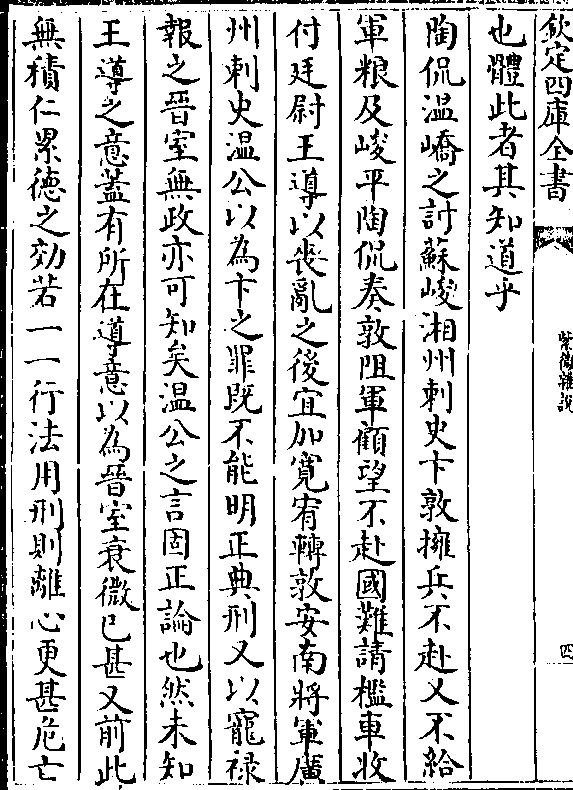 欽定四庫全書
紫微雜說
四
也體此者其知道乎
陶侃温嶠之討蘇峻湘州刺史卞敦擁兵不赴又不給
軍粮及峻平陶侃奏敦阻軍顧望不赴國難請檻車收
付廷尉王導以喪亂之後宜加寛宥轉敦安南將軍廣
州刺史温公以為卞之罪既不能明正典刑又以寵祿
報之晉室無政亦可知矣温公之言固正論也然未知
王導之意蓋有所在導意以為晉室衰微已甚又前此
無積仁累德之効若一一行法用刑則離心更甚危亡